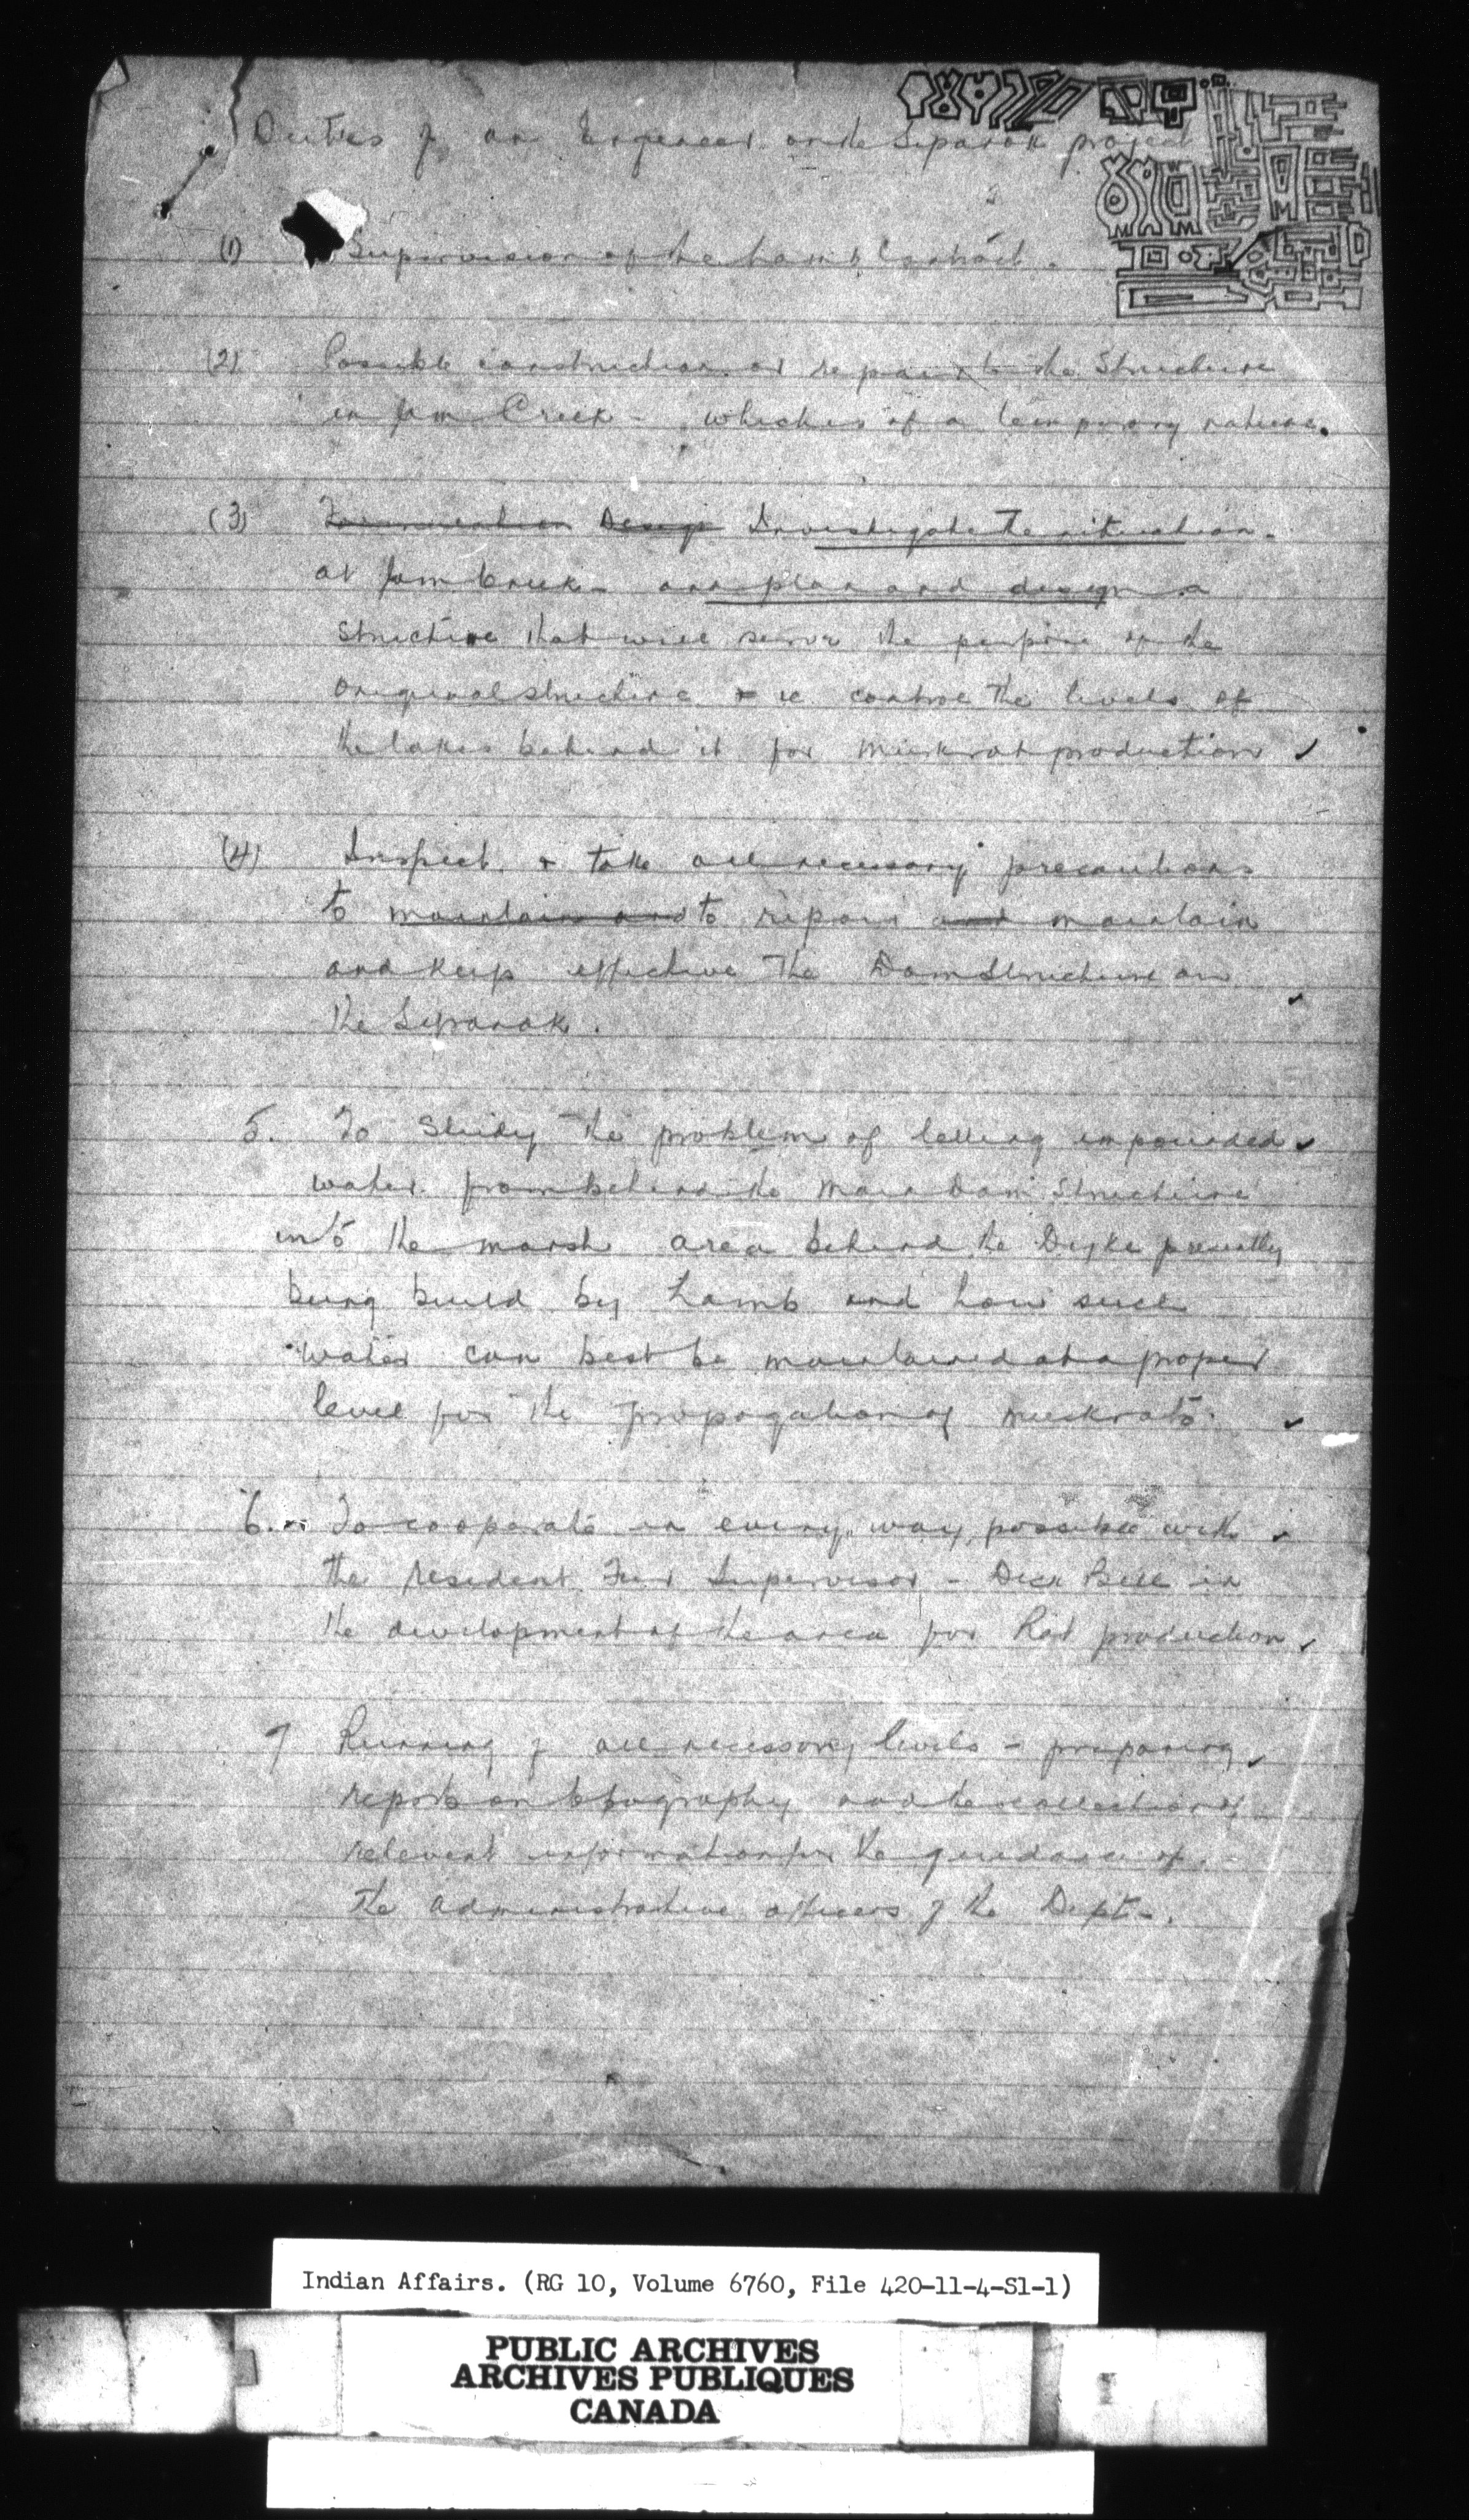 Duties of an Engineer on the Sipanok project
(1) Supervision of the Lamb Contract.
(2) Possible construction or repair to the Structure
in Jam Creek - which is of a temporary nature.
(3) Design Investigate The situation.
at Jam Creek - and plan and design a
structure that will serve the purpose of the
original structure - ie control the levels of
the lakes behind it for muskrat production
(4) Inspect & take all necessary precautions
to maintain and to repair and maintain
and keep effective The Dam Structure on
the Sipanok.
5. To Study the problem of letting impounded
water from behind the main dam structure
into the marsh area behind the Dyke presently
being build by Lamb and how such
water can best be maintained at a proper
level for the propogation of muskrats.
6. To cooperate in every way possible with
the resident Fur Supervisor - Bell in
the development of the area for Rat production.
7 Running of all necessary levels - preparing
reports on topography and the collection of
relevent information for the guidance of
the administrative officers of the Dept.
Indian Affairs. (RG 10, Volume 6760, File 420-11-4-S1-1)
PUBLIC ARCHIVES
ARCHIVES PUBLIQUES
CANADA